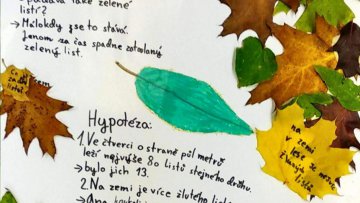 Opadává také zelené
listí?
→ Málokdy se to stává.
Jenom za čas spadne zatoulaný
zelený list.
Hypotéza:
1. Ve čtverci o straně půl metru
leží nejvýše 80 listů stejného druhu.
→ bylo jich 13.
2. Na zemi je více žlutého listí
→ Ano
na
zemi
leze se nejvíc
žlutých
listů